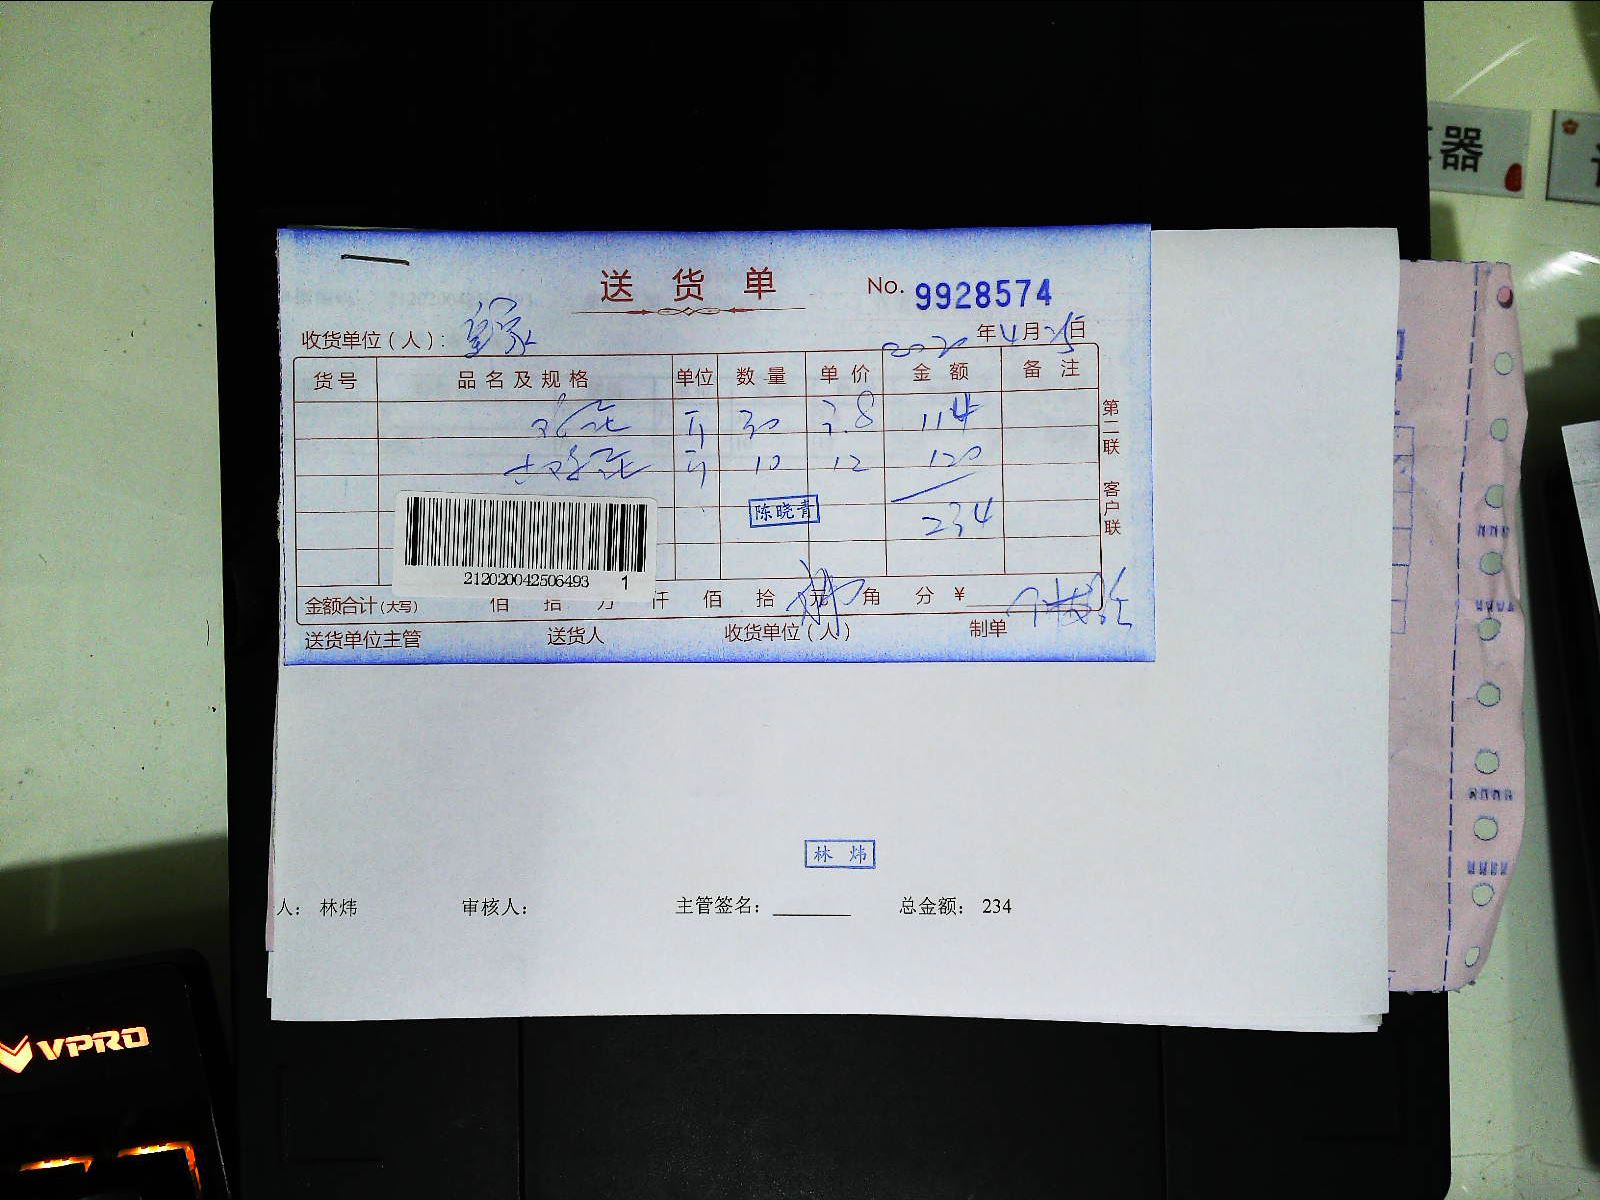 器
送 货 单 No. 9928574
收货单位（人）： 皇家
2020 年 4 月 25 日
货号 品名及规格 单位 数量 单价 金额 备注
斤 30 3.8 114
斤 10 12 120
陈晓青
234
第二联 客户联
212020042506493 1
金额合计(大写) 佰 拾 万 仟 佰 拾 元 角 分 ¥
送货单位主管 送货人 收货单位（人） 制单
林 炜
人： 林炜 审核人： 主管签名： 总金额： 234
VPRO